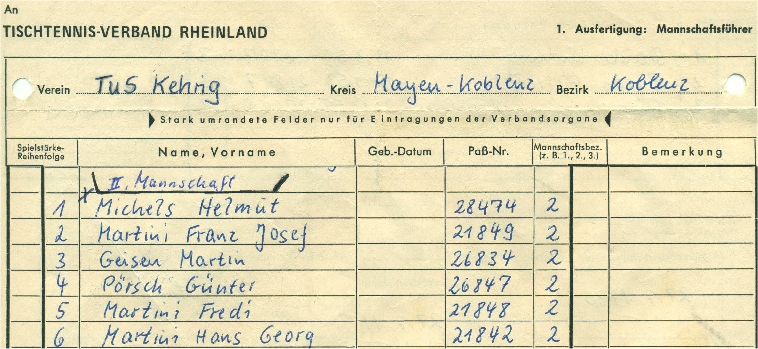 An
TISCHTENNIS-VERBAND RHEINLAND
1. Ausfertigung: Mannschaftsführer
Verein TuS Kehrig Kreis Mayen-Koblenz Bezirk Koblenz
Stark umrandete Felder nur für Eintragungen der Verbandsorgane
Spielstärke-Reihenfolge Name, Vorname Geb.-Datum Paß-Nr. Mannschaftsbez. (z. B. 1., 2., 3.) Bemerkung
II. Mannschaft
1 Michels Helmut 28474 2
2 Martini Franz Josef 21849 2
3 Geisen Martin 26834 2
4 Pörsch Günter 26847 2
5 Martini Fredi 21848 2
6 Martini Hans Georg 21842 2